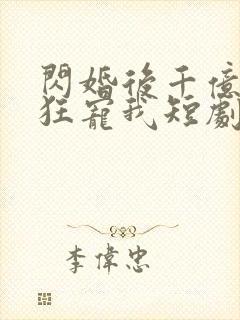 閃婚後千億
狂寵我短劇
李偉忠